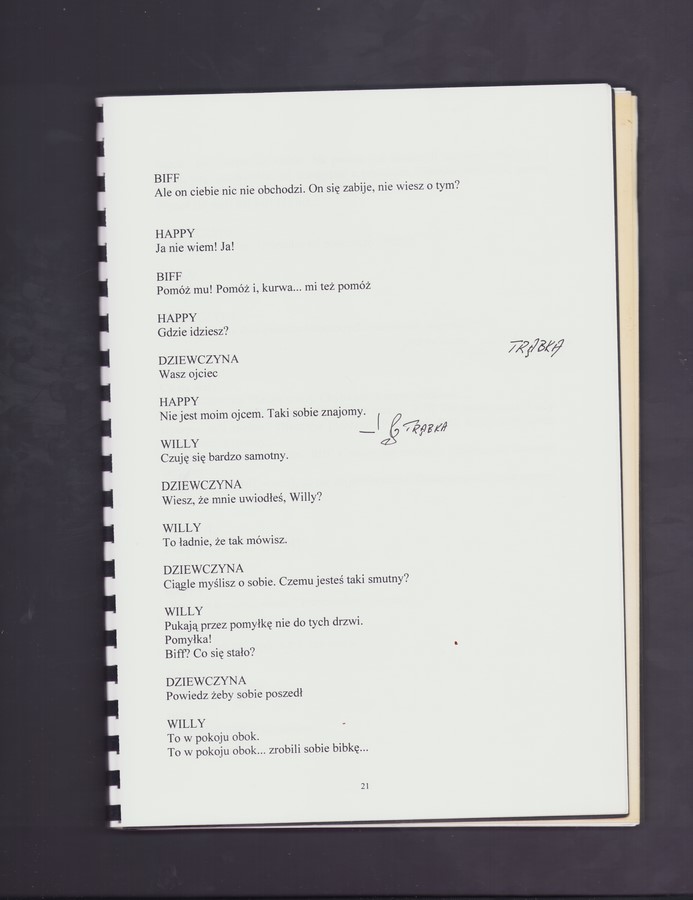 BIFF
Ale on ciebie nic nie obchodzi. On się zabije, nie wiesz o tym?
HAPPY
Ja nie wiem! Ja!
BIFF
Pomóż mu! Pomóż i, kurwa... mi też pomóż
HAPPY
Gdzie idziesz?
TRĄBKA
DZIEWCZYNA
Wasz ojciec
HAPPY
Nie jest moim ojcem. Taki sobie znajomy.
TRĄBKA
WILLY
Czuję się bardzo samotny.
DZIEWCZYNA
Wiesz, że mnie uwiodłeś, Willy?
WILLY
To ładnie, że tak mówisz.
DZIEWCZYNA
Ciągle myślisz o sobie. Czemu jesteś taki smutny?
WILLY
Pukają przez pomyłkę nie do tych drzwi.
Pomyłka!
Biff? Co się stało?
DZIEWCZYNA
Powiedz żeby sobie poszedł
WILLY
To w pokoju obok.
To w pokoju obok... zrobili sobie bibkę...
21